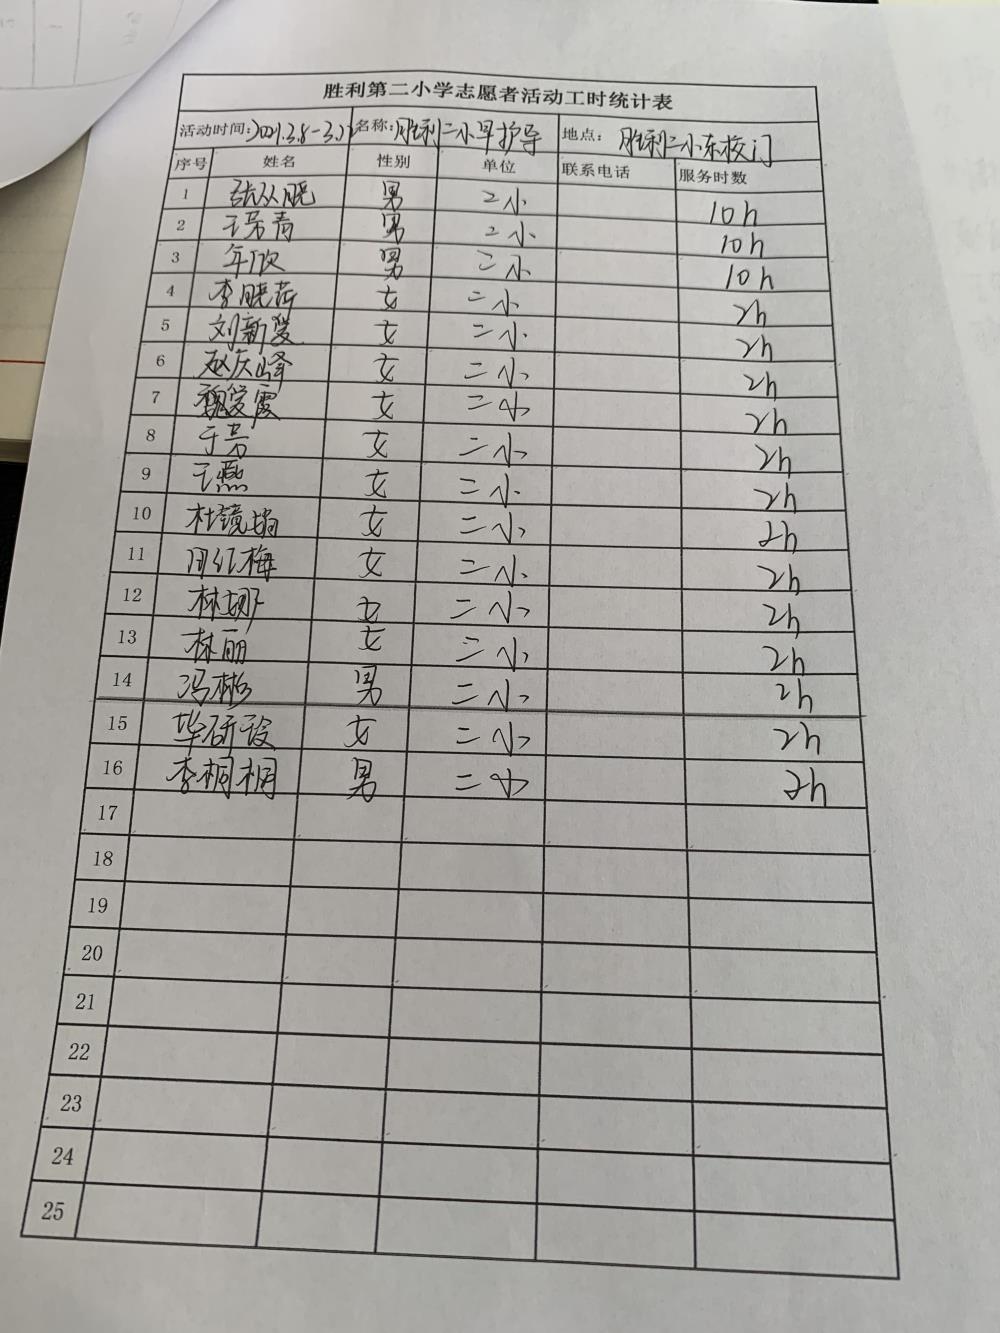 胜利第二小学志愿者活动工时统计表
活动时间:2021.3.8-3.12 名称:胜利二小早护导 地点:胜利二小东校门
序号 姓名 性别 单位 联系电话 服务时数
1 张从晓 男 二小 10h
2 男 二小 10h
3 年欣 男 二小 10h
4 李晓荷 女 二小 2h
5 刘新爱 女 二小 2h
6 赵庆峰 女 二小 2h
7 魏爱霞 女 二小 2h
8 于芳 女 二小 2h
9 王燕 女 二小 2h
10 杜镜娟 女 二小 2h
11 闫红梅 女 二小 2h
12 林娜 女 二小 2h
13 林丽 女 二小 2h
14 冯彬 男 二小 2h
15 毕研玲 女 二小 2h
16 李桐桐 男 二小 2h
17
18
19
20
21
22
23
24
25